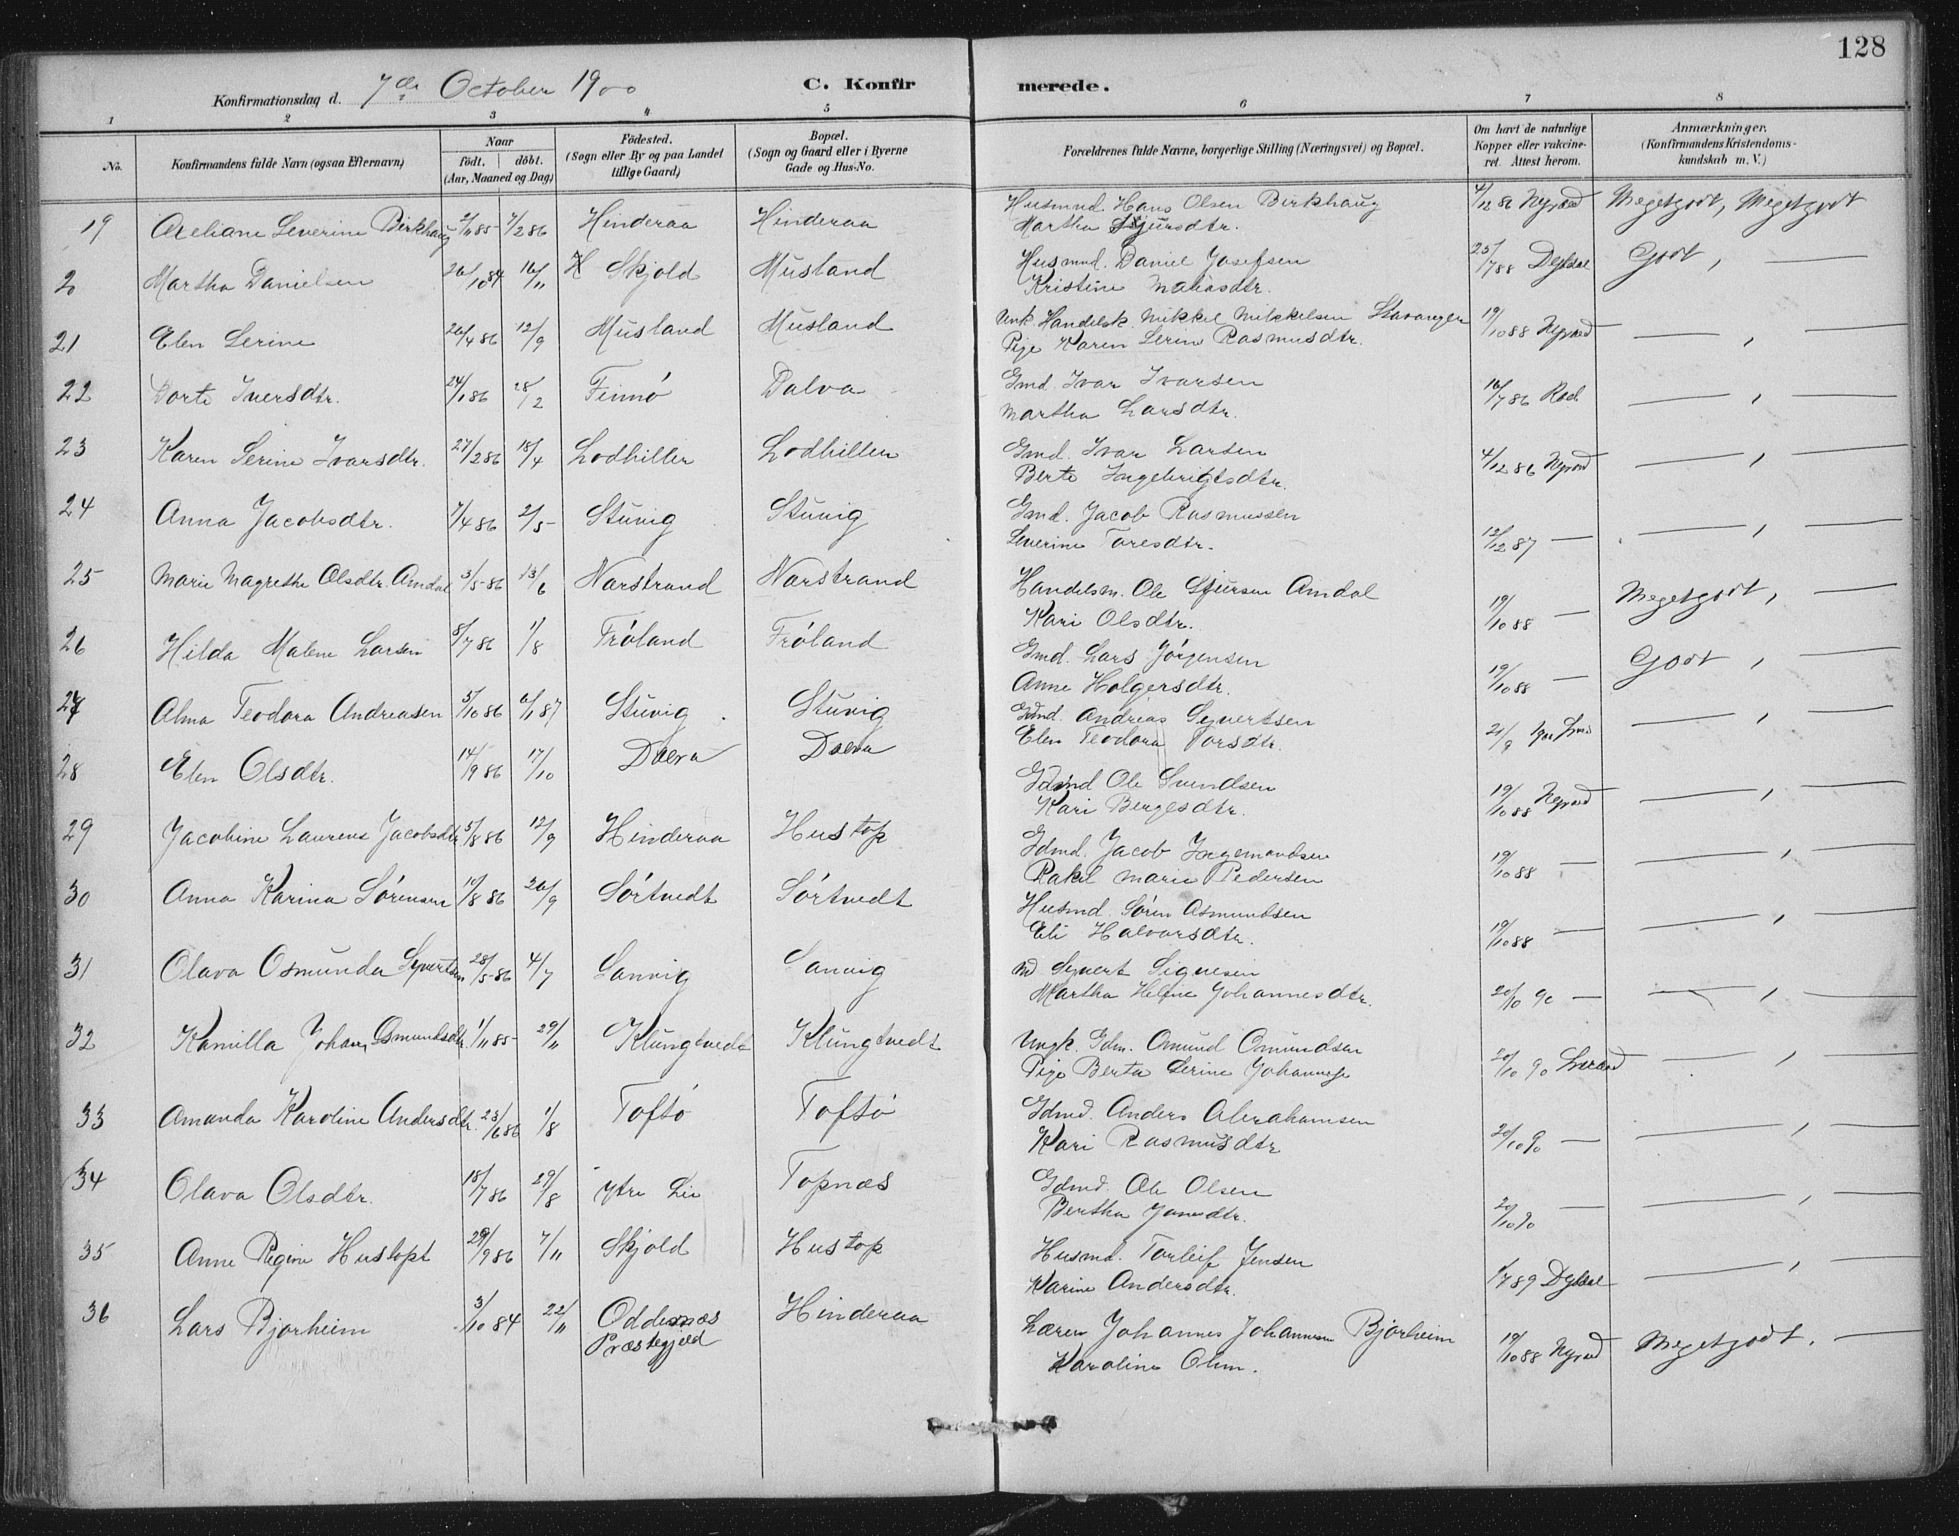 128
Konfirmationsdag d. 7de October 1900
C. Konfirmerede.
1 2 3 4 5 6 7 8
No.
Konfirmandens fulde Navn (ogsaa Efternavn)
Naar
födt. döbt.
(Aar, Maaned og Dag)
Födested.
(Sogn eller By og paa Landet
tillige Gaard)
Bopæl.
(Sogn og Gaard eller i Byerne
Gade og Hus-No.
Forældrenes fulde Navne, borgerlige Stilling (Næringsvei) og Bopæl.
Om havt de naturlige
Kopper eller vakcine-
ret. Attest herom.
Anmærkninger.
(Konfirmandens Kristendoms-
kundskab m. V.)
19 Severine Birkhaug 2/11 85 7/2 86 Hinderaa Hinderaa Husmnd. Hans Olsen Birkhaug 4/12 86 Nyrød Megetgodt, Megetgodt
Martha Sjursdtr.
20 Martha Danielsen 26/10 84 16/11 Skjold Musland Husmnd. Daniel Josefsen 25/7 88 Godt, —
Kristine
21 Elen Serine 26/4 86 12/9 Musland Musland Unk. Handelsk. Mikkel Mikkelsen Stavanger 19/10 88 Nyrød — , —
Pige Karen Serine Rasmusdtr.
22 Dorte Iversdtr. 24/1 86 28/2 Finnö Dalva Gmd. Ivar Ivarsen 16/7 86 — , —
Martha Larsdtr.
23 Karen Serine Ivarsdtr. 27/2 86 18/4 Lodhiller Lodhiller Gmd. Ivar Larsen 4/12 86 Nyrød — , —
Berte Ingebrigtsdtr.
24 Anna Jacobsdtr. 7/4 86 2/5 Stuvig Stuvig Gmd. Jacob Rasmussen 12/12 87 — — , —
Severine Toresdtr.
25 Marie Magrethe Olsdtr. Amdal 3/5 86 13/6 Narstrand Narstrand Handelsm. Ole Sjursen Amdal 19/10 88 — Megetgodt, —
Kari Olsdtr.
26 Hilda Malene Larsen 8/7 86 1/8 Fröland Fröland Gmd. Lars Jörgensen 19/10 88 — Godt , —
Anne Holgersdtr.
27 Alma Teodora Andreasen 5/10 86 6/1 87 Stuvig Stuvig Gdmd. Andreas Syvertsen 21/9 — , —
Elen Teodora Torsdtr.
28 Elen Olsdtr. 14/9 86 17/10 Dueva Dueva Gdmd Ole Svendsen 19/10 88 Nyrød — , —
Kari Bergesdtr.
29 Jacobine Laurense Jacobsdtr 5/8 86 12/9 Hinderaa Hustop Gdmd. Jacob Ingemundsen 19/10 88 — — , —
Rakel Marie Pedersen
30 Anna Karina Sörensen 10/8 86 26/9 Sörtvedt Sörtvedt Husmd. Sören Osmundsen 19/10 88 — — , —
Eli Halvorsdtr.
31 Olava Osmunda Syvertsen 28/5 86 4/7 Sanvig Sanvig Syvert Sigvesen 20/10 90 — — , —
Martha Helene Johannesdtr.
32 Kamilla Johan Osmundsdtr. 1/11 85 29/11 Klungtvedt Klungtvedt Ungk. Gdm. Omund Omundsen 20/10 90 — , —
Pige Berta Serine Johannese
33 Amanda Karoline Andersdtr. 23/6 86 1/8 Toftö Toftö Gdmd. Anders Abrahamsen 20/10 90 — — , —
Kari Rasmusdtr
34 Olava Olsdtr. 18/7 86 29/8 Ytre Lie Topnæs Gdmd. Ole Olsen 20/10 90 — — , —
Bertha Jansdtr.
35 Anne Regine Hustopt 29/9 86 7/11 Skjold Hustop Husmd. Torleif Jensen — , —
Karine Andersdtr.
36 Lars Bjorheim 3/10 84 22/11 Oddernæs Hinderaa Lærer Johannes Johannesen Bjorheim 19/10 88 Nyrød Megetgodt. —
Præstegjeld Karoline Ohm.